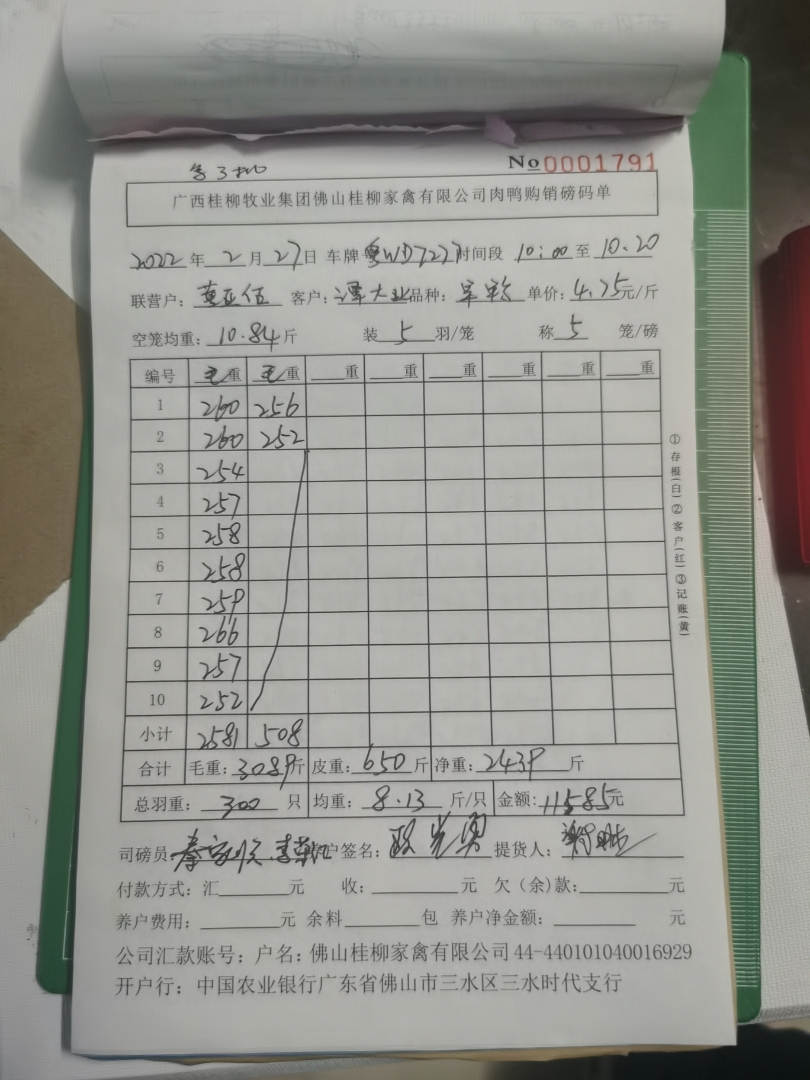 No 0001791
广西桂柳牧业集团佛山桂柳家禽有限公司肉鸭购销磅码单
2022 年 2 月 27 日 车牌 粤WD7277 时间段 10:00 至 10.20
联营户: 客户: 谭大业 品种: 单价: 4.75 元/斤
空笼均重: 10.84 斤 装 5 羽/笼 称 5 笼/磅
编号 毛重 毛重 重 重 重 重 重 重
1 260 256
2 260 252
3 254
4 257
5 258
6 258
7 259
8 266
9 257
10 252
小计 2581 508
合计 毛重: 3089 斤 皮重: 650 斤 净重: 2439 斤
总羽重: 300 只 均重: 8.13 斤/只 金额: 11585 元
司磅员 户签名: 提货人:
付款方式: 汇 元 收: 元 欠(余)款: 元
养户费用: 元 余料 包 养户净金额: 元
公司汇款账号: 户名: 佛山桂柳家禽有限公司 44-440101040016929
开户行: 中国农业银行广东省佛山市三水区三水时代支行
①存根(白)②客户(红)③记账(黄)